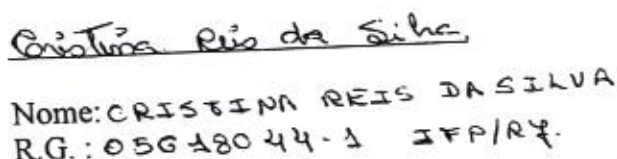 Cristina Reis da Silva
Nome: CRISTINA REIS DA SILVA
R.G. : 05618044-1 IFP/RJ.